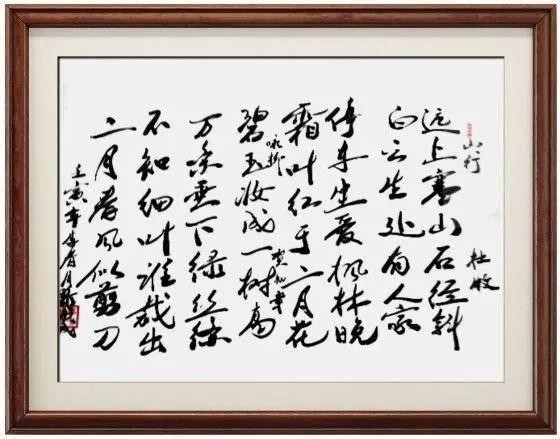 山行
杜牧
远上寒山石径斜
白云生处有人家
停车坐爱枫林晚
霜叶红于二月花
咏柳
贺知章
碧玉妆成一树高
万条垂下绿丝绦
不知细叶谁裁出
二月春风似剪刀
壬寅年春月